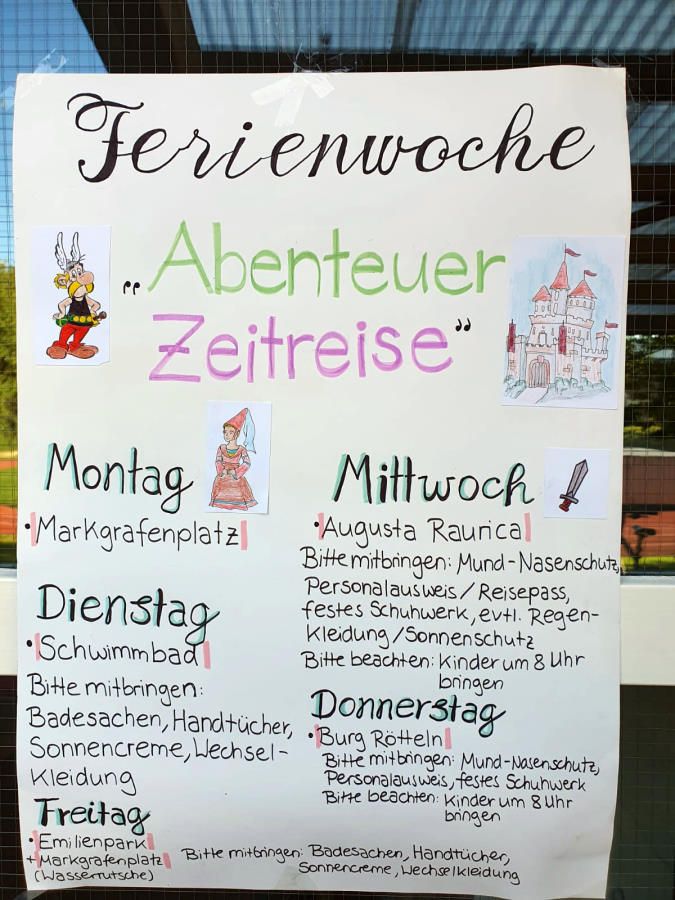 Ferienwoche
„Abenteuer
Zeitreise"
Montag
• Markgrafenplatz
Dienstag
• Schwimmbad
Bitte mitbringen:
Badesachen, Handtücher,
Sonnencreme, Wechsel-
kleidung
Mittwoch
• Augusta Raurica
Bitte mitbringen: Mund-Nasenschutz,
Personalausweis / Reisepass,
festes Schuhwerk, evtl. Regen-
kleidung / Sonnenschutz
Bitte beachten: Kinder um 8 Uhr
bringen
Donnerstag
• Burg Rötteln
Bitte mitbringen: Mund-Nasenschutz,
Personalausweis, festes Schuhwerk
Bitte beachten: Kinder um 8 Uhr
bringen
Freitag
• Emilienpark
+ Markgrafenplatz
(Wasserrutsche)
Bitte mitbringen: Badesachen, Handtücher,
Sonnencreme, Wechselkleidung